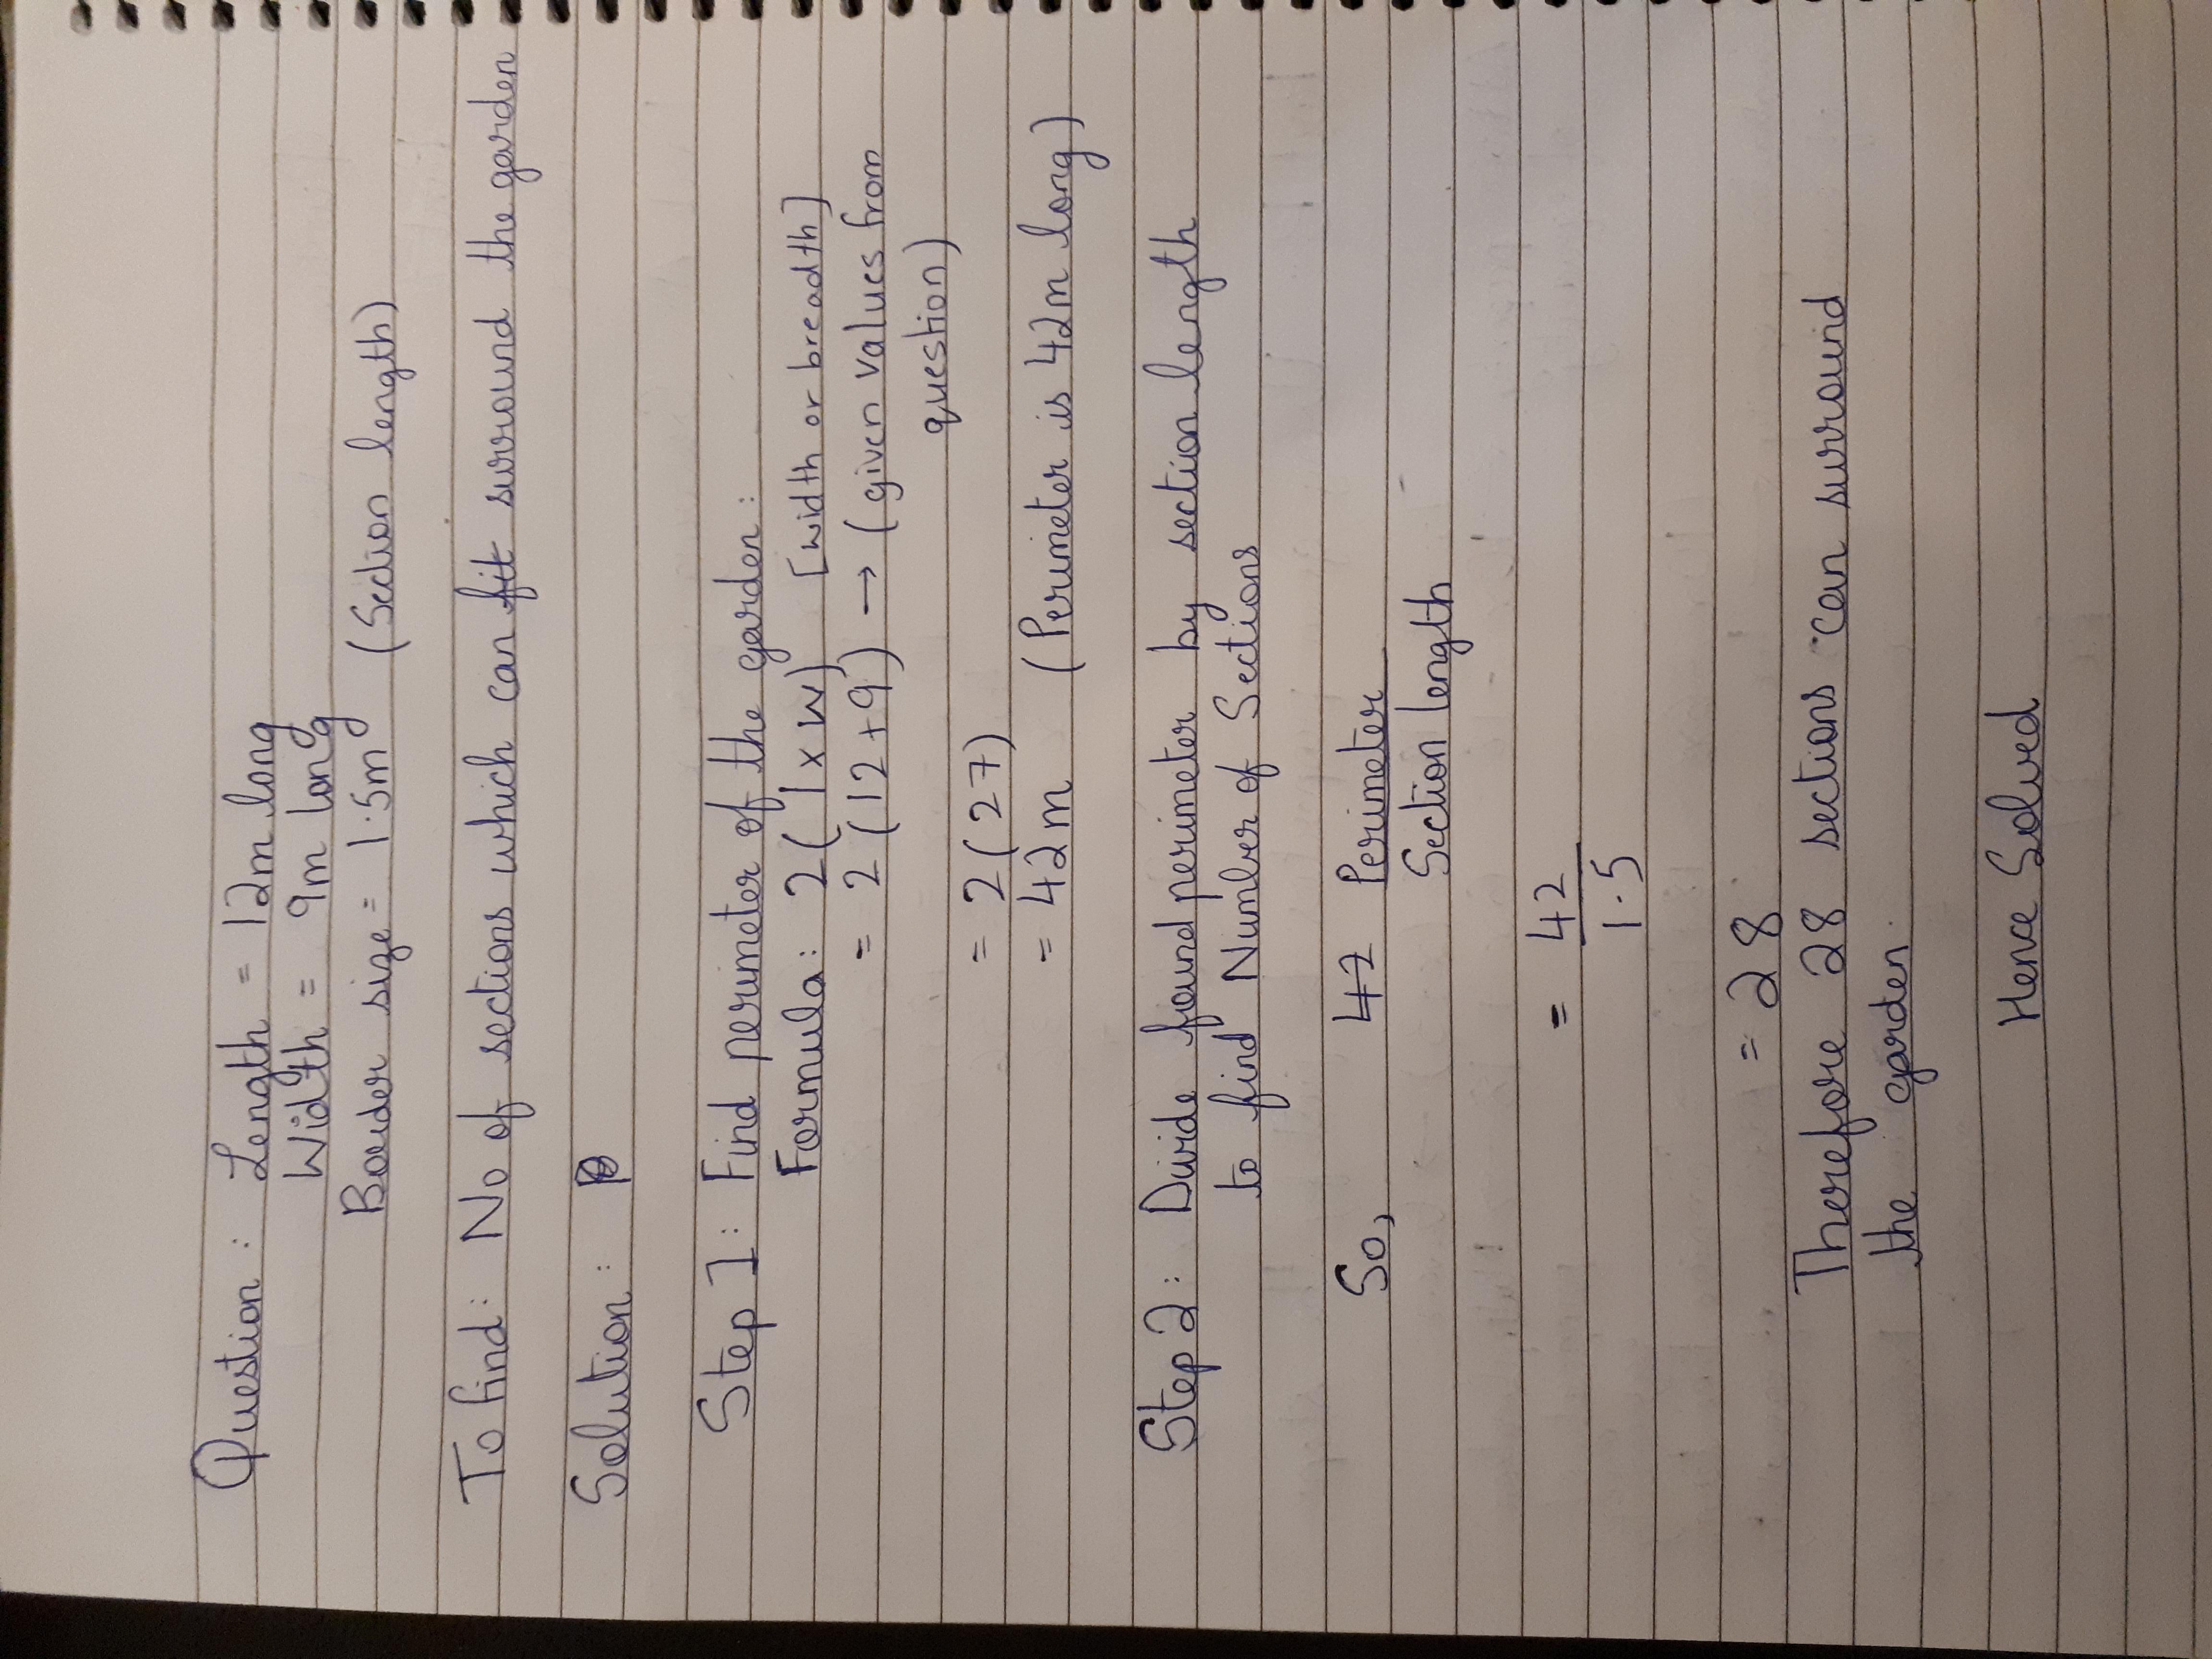 Question : Length = 12m long
Width = 9m long
Bouder size = 1.5m (Section length)
To find : No of sections which can fit surround the garden
Solution :
Step 1 : Find perimeter of the garden :
Formula : 2(l x w) [width or breadth]
= 2 (12+9) → (given values from
question)
= 2(27)
= 42m (Perimeter is 42m long)
Step 2 : Divide found perimeter by section length
to find Number of Sections
So, 42 Perimeter
Section length
= 42
1.5
= 28
Therefore 28 sections can surround
the garden.
Hence Solved